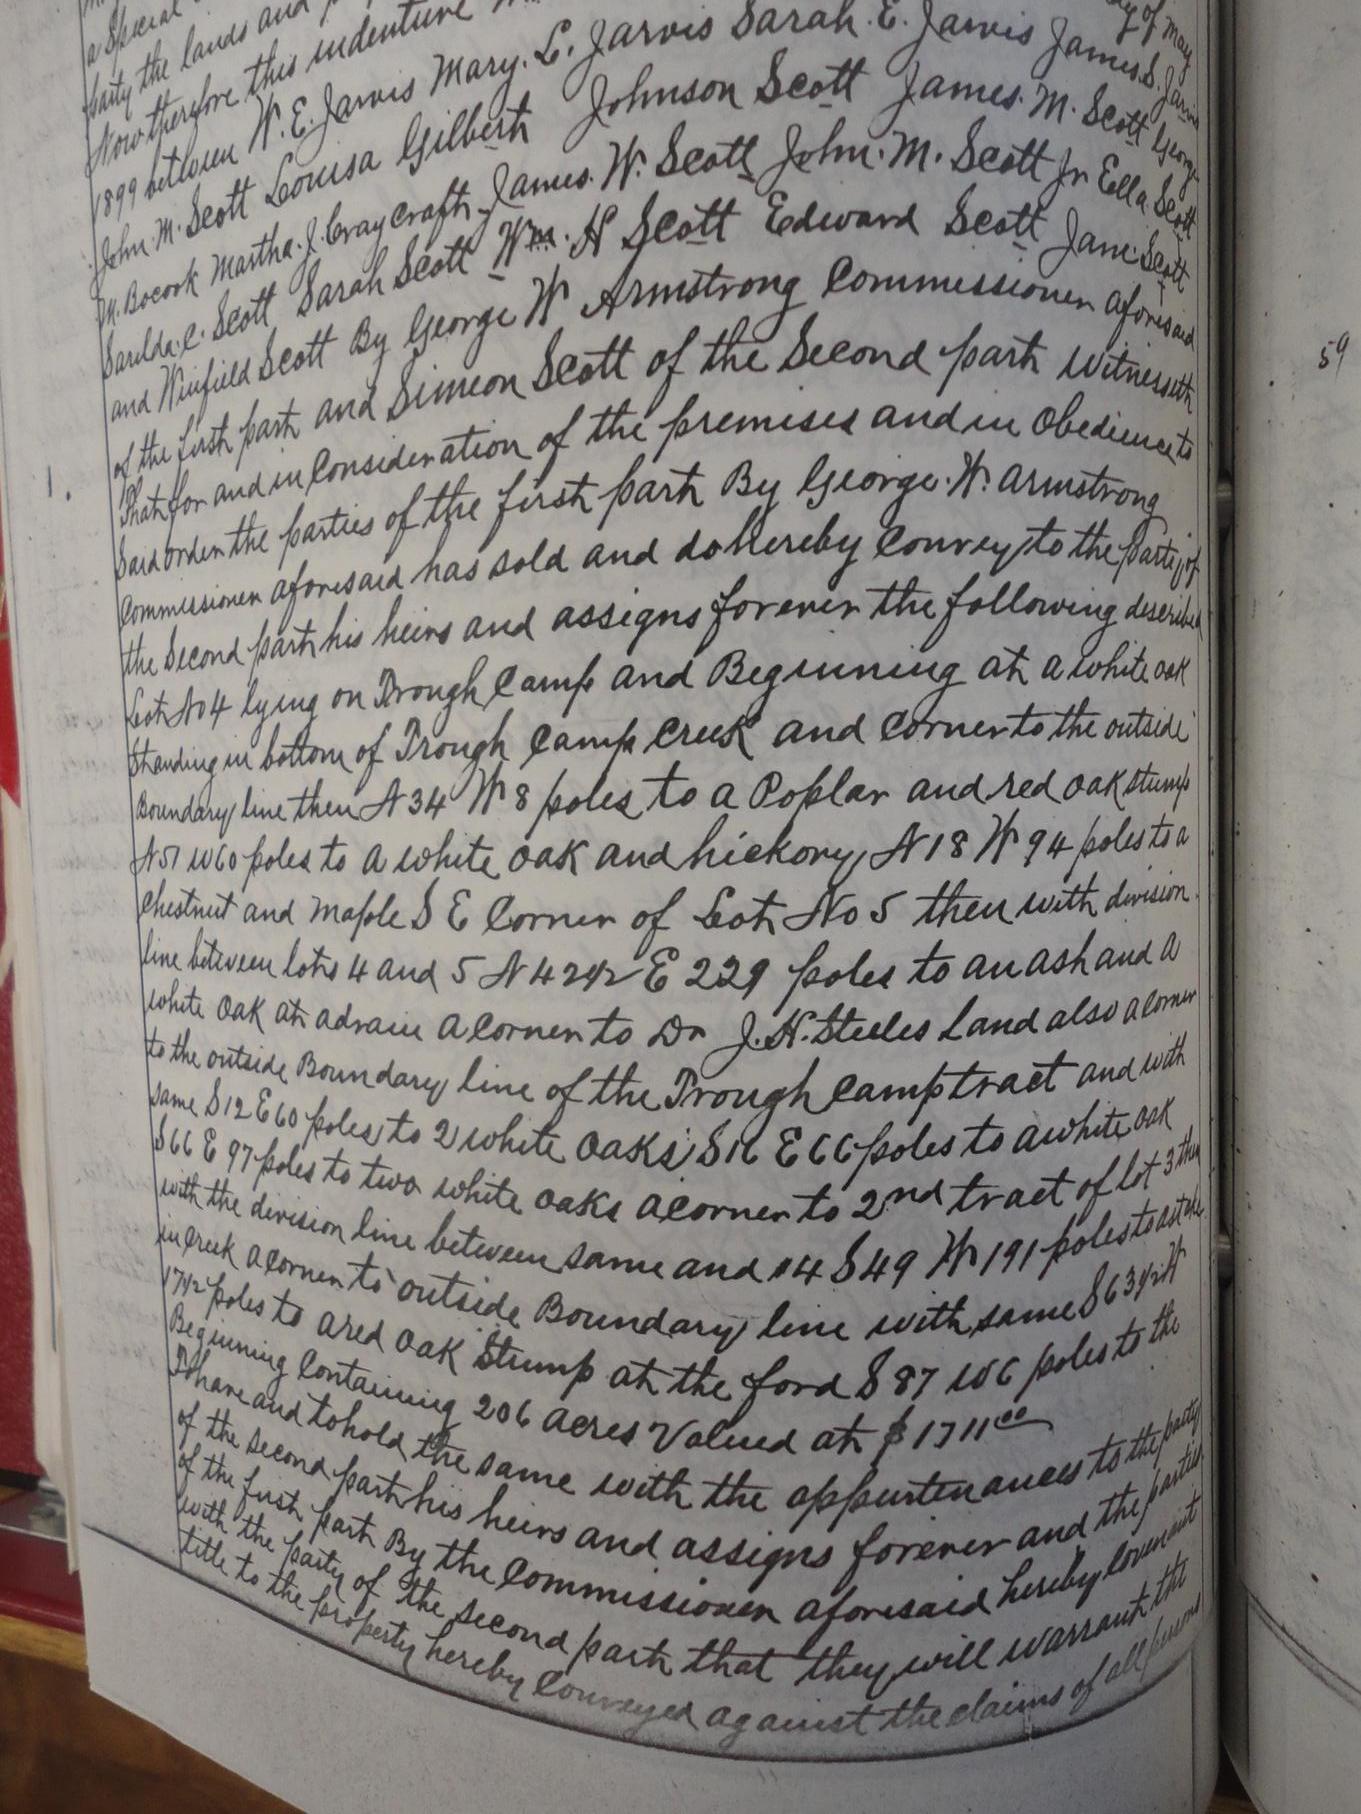 a Special
party the lands and
Now therefore this indenture day of May
1899 between W. E. Jarvis Mary. L. Jarvis Sarah. E. Jarvis James. S. Jarvis
John. M. Scott Louisa Gilbert Johnson Scott James. M. Scott George
M. Bocook Martha. J. Craycraft James. W. Scott John. M. Scott Jr Ella Scott
Sarilda. C. Scott Sarah Scott Wm. H Scott Edward Scott Jane Scott
and Winfield Scott By George W Armstrong Commissioner aforesaid
of the first part and Simeon Scott of the Second part Witnesseth
That for and in Consideration of the premises and in Obedience to
Said order the parties of the first part By George. W. Armstrong
Commissioner aforesaid has sold and do hereby Convey to the party of
the Second part his heirs and assigns forever the following described
Lot No 4 lying on Trough Camp and Beginning at a white oak
Standing in bottom of Trough Camp Creek and Corner to the outside
Boundary line then N 34 W 8 poles to a Poplar and red oak stump
N 51 W 60 poles to a white oak and hickory N 18 W 94 poles to a
Chestnut and Maple S E Corner of Lot No 5 then with division
line between lots 4 and 5 N 42 1/2 E 229 poles to an ash and a
white Oak at a drain a Corner to Dr J. H. Steeles Land also a corner
to the outside Boundary line of the Trough Camp tract and with
same S 12 E 60 poles to 2 white Oaks S 16 E 66 poles to a white oak
S 66 E 97 poles to two white oaks a corner to 2nd tract of lot 3 then
with the division line between same and #4 S 49 W 191 poles to a stake
in creek a Corner to outside Boundary line with same S 63 1/2 W
17 1/2 poles to a red oak Stump at the ford S 87 W 6 poles to the
Beginning Containing 206 acres Valued at $1711.00
To have and to hold the same with the appurtenances to the party
of the second part his heirs and assigns forever and the parties
of the first part By the Commissioner aforesaid hereby Covenant
with the party of the second part that they will warrant the
title to the property hereby Conveyed against the claims of all persons
59
1.